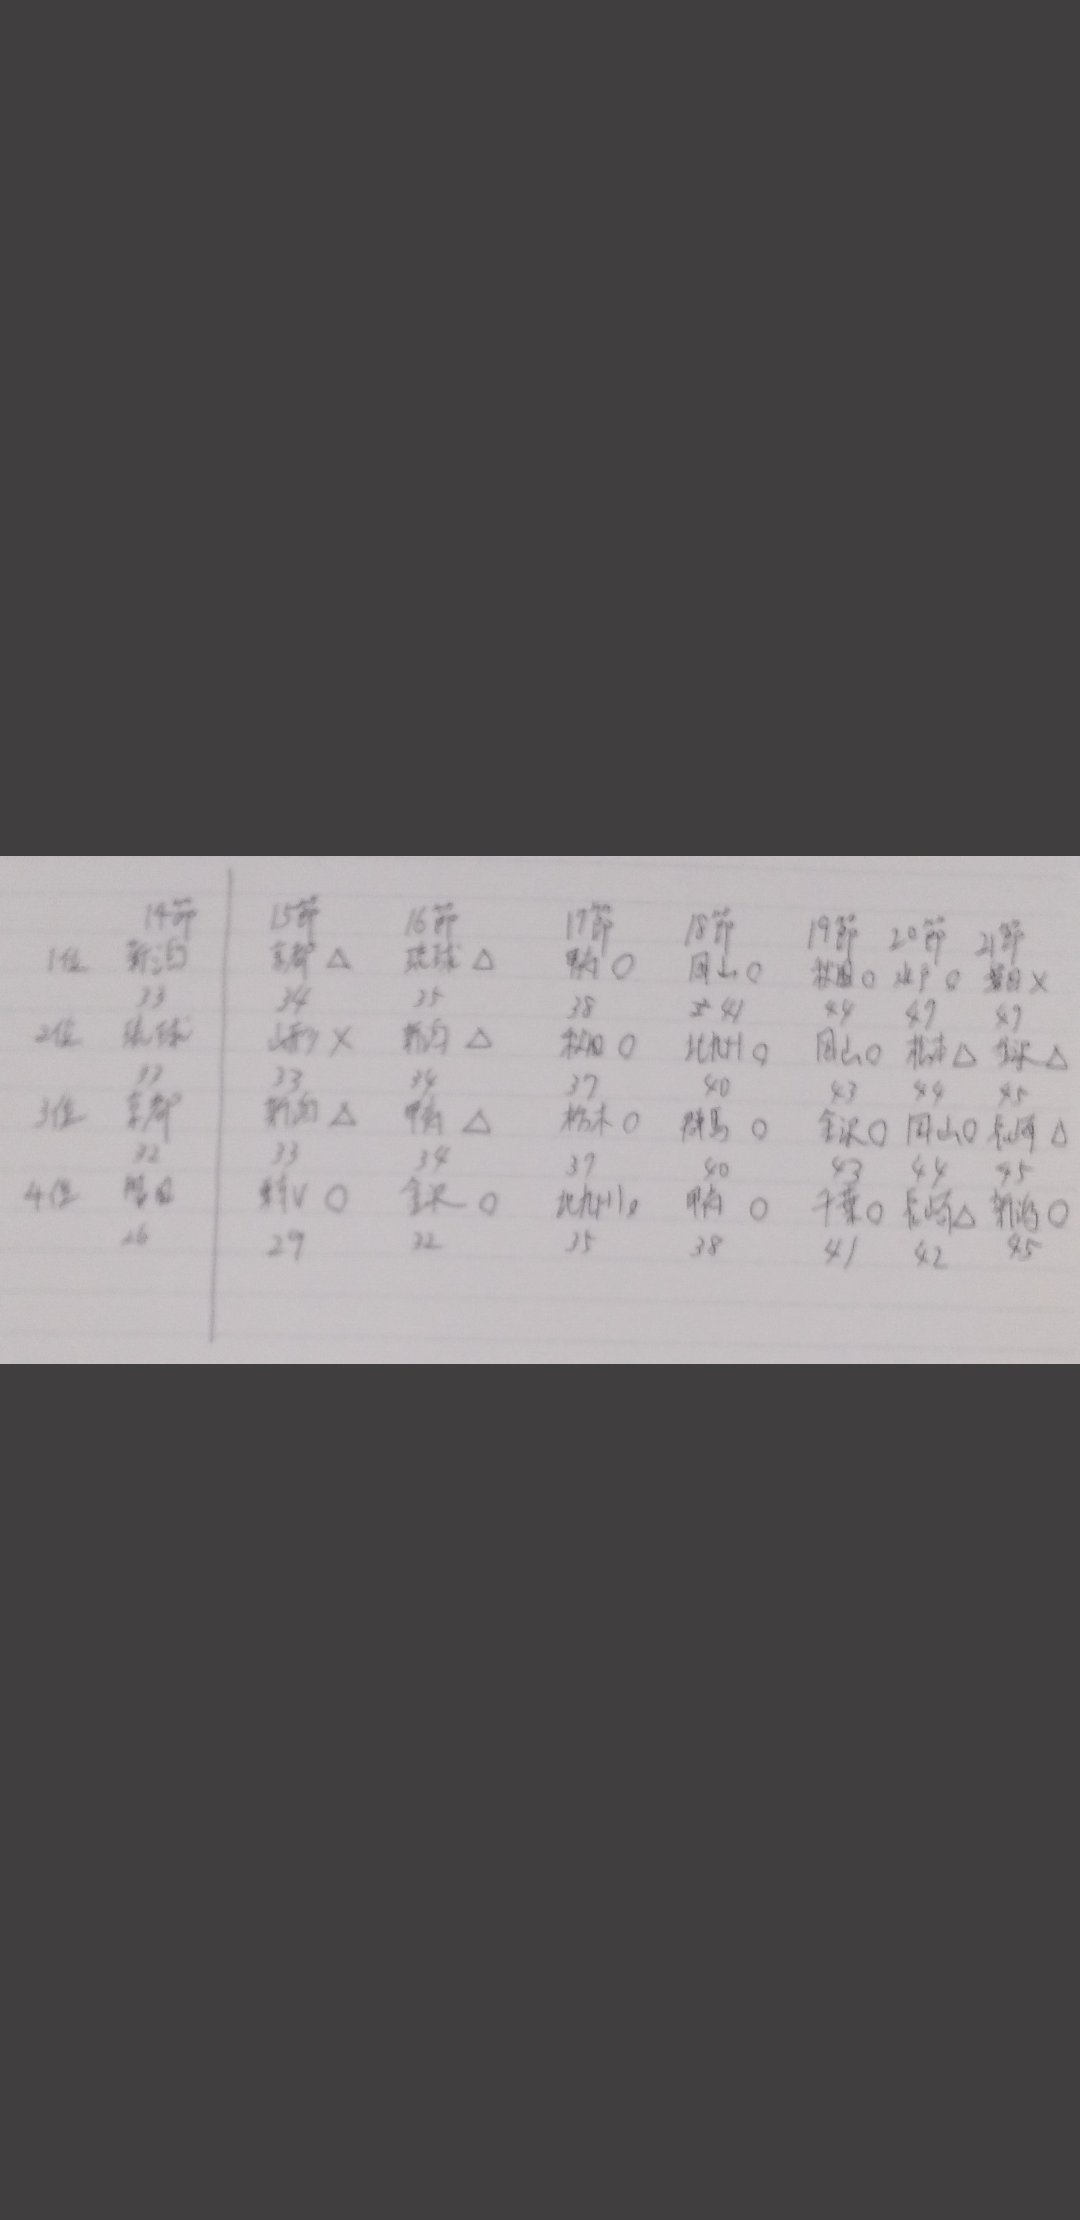 14節 15節 16節 17節 18節 19節 20節 21節
1位 新潟 京都 △ 琉球 △ 甲府 ○ 岡山 ○ 秋田 ○ 水戸 ○ 磐田 ×
33 34 35 38 41 44 47 47
2位 琉球 山形 × 新潟 △ 秋田 ○ 北九州 ○ 岡山 ○ 松本 △ 金沢 △
33 33 34 37 40 43 44 45
3位 京都 新潟 △ 甲府 △ 栃木 ○ 群馬 ○ 金沢 ○ 岡山 ○ 長崎 △
32 33 34 37 40 43 44 45
4位 磐田 東京V ○ 金沢 ○ 北九州 ○ 甲府 ○ 千葉 ○ 長崎 △ 新潟 ○
26 29 32 35 38 41 42 45